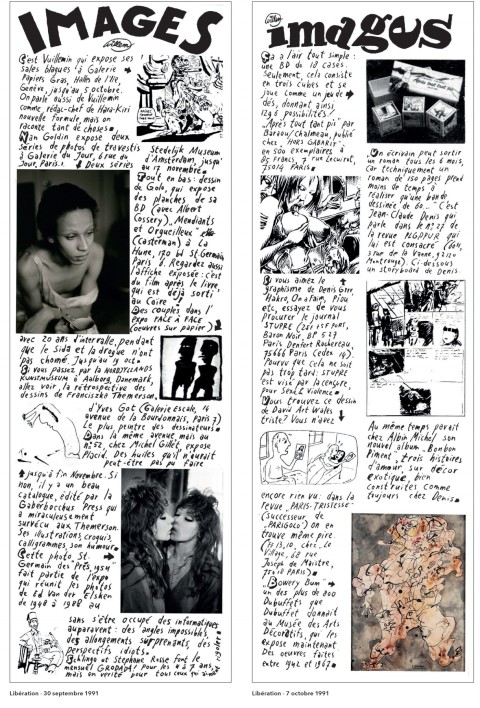 IMAGES
Willem
C'est Vuillemin qui expose ses
"sales blagues" à Galerie
Papiers Gras, Halle de l'Ile,
Genève, jusqu'au 5 octobre.
On parle aussi de Vuillemin
comme rédac-chef de Hara-Kiri
nouvelle formule, mais on
raconte tant de choses.
Nan Goldin expose deux
séries de photos de travestis
à Galerie du Jour, 6 rue du
Jour, Paris 1. Deux séries
Stedelijk Museum
d'Amsterdam, jusqu'
au 17 novembre.
Tout en bas: dessin
de Golo, qui expose
des planches de sa
BD (avec Albert
Cossery), "Mendiants
et Orgueilleux"
(Casterman) à La
Hune, 170 bd St Germain
Paris 6. Regardez aussi
l'affiche exposée: c'est
du film après le livre,
qui est déjà sorti
au Caire
Des couples dans l'
expo FACE à FACE
(oeuvres sur papier)
avec 20 ans d'intervalle, pendant
que le Sida et la drogue n'ont
pas chômé. Jusqu'au 19 octo.
Si vous passez par la NORDJYLLANDS
KUNSTMUSEUM à Aalborg, Danemark,
allez voir la rétrospective des
dessins de Franciszka Themerson,
d'Yves Got (Galerie Escale, 14
avenue de la Bourdonnais, Paris 7)
Le plus peintre des dessinateurs.
Dans la même avenue, mais au
n° 52, chez Michel Gillet, expose
Placid. Des huiles qu'il n'aurait
peut-être pas pu faire
jusqu'à fin Novembre. Si
non, il y a un beau
catalogue, édité par la
Gaberbocchus Press qui
a miraculeusement
survécu aux Themerson.
Ses illustrations, croquis,
calligrammes, son humour.
Cette photo, "St.
Germain des Prés, 1954"
fait partie de l'expo
qui réunit les photos
de Ed Van der Elsken
de 1948 à 1988 au
sans s'être occupé des informatiques
auparavant: des angles impossibles,
des allongements surprenants, des
perspectifs idiots.
Schlingo et Stéphane Rosse font le
mensuel GRODADA! Pour les 4 à 7 ans,
mais en vérité pour tous ceux qui
Libération - 30 septembre 1991
Willem
images
Ça a l'air tout simple:
une BD de 18 cases.
Seulement, cela consiste
en trois cubes et se
joue comme un jeu de
dés, donnant ainsi
1296 possibilités!
"Après tout tant pis" par
Baraou/Chalmeau, publié
chez "HORS GABARIT"
en 500 exemplaires à
85 Francs, 7 rue Lecuirot,
75014 PARIS.
Un écrivain peut sortir
un roman tous les 6 mois.
Car techniquement un
roman de 150 pages prend
moins de temps à
réaliser qu'une bande
dessinée de 60... C'est
Jean-Claude Denis qui
parle dans le n° 27 de
la revue PLGPPUR qui
lui est consacré
92120
Montrouge). Ci-dessous
un storyboard de Denis.
Si vous aimez le
graphisme de Denis Grrr,
Hakro, Onatain, Piou
etc, essayez de vous
procurer le journal
STUPRE
Baron Noir, BP 527
Paris Denfert Rochereau,
75666 Paris Cedex 14).
Pourvu que cela ne soit
pas trop tard: STUPRE
est visé par la censure,
pour Sexe & Violence.
Vous trouvez ce dessin
de David Art Wales
triste? Vous n'avez
Au même temps paraît
chez Albin Michel son
nouvel album, "Bonbon
Piment", trois histoires
d'amour, sur décor
exotique, bien
construites comme
toujours chez Denis.
encore rien vu: dans la
revue "PARIS-TRISTESSE"
(successeur de
"PARIGOLO") on en
trouve même pire.
Village, 68 rue
Joseph de Maistre,
75018 PARIS)
"Bowery Bum"
un des plus de 200
Dubuffets que
Dubuffet donnait
au Musée des Arts
Décoratifs, qui les
expose maintenant.
Des oeuvres faites
entre 1942 et 1967.
Libération - 7 octobre 1991